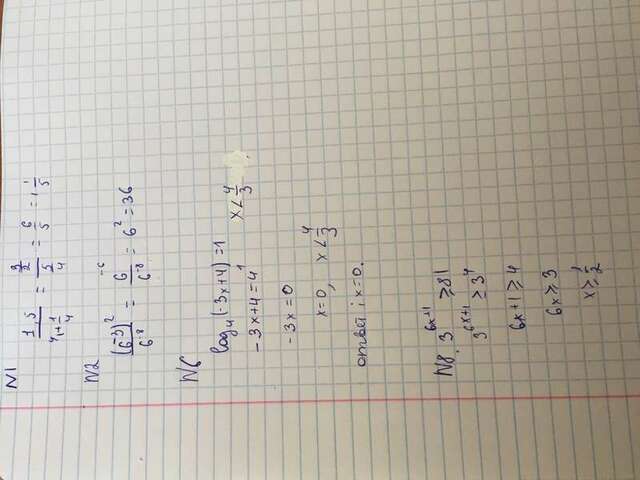 N1
1,5 / (1+1/4) = (3/2) / (5/4) = 6/5 = 1 1/5
N2
(6^-3)^2 / 6^-8 = 6^-6 / 6^-8 = 6^2 = 36
N6
log_4(-3x+4)=1
-3x+4=4^1 x<4/3
-3x=0
x=0, x<4/3
ответ: x=0.
N8. 3^(6x+1) ≥81
3^(6x+1) ≥ 3^4
6x+1≥4
6x≥3
x≥1/2